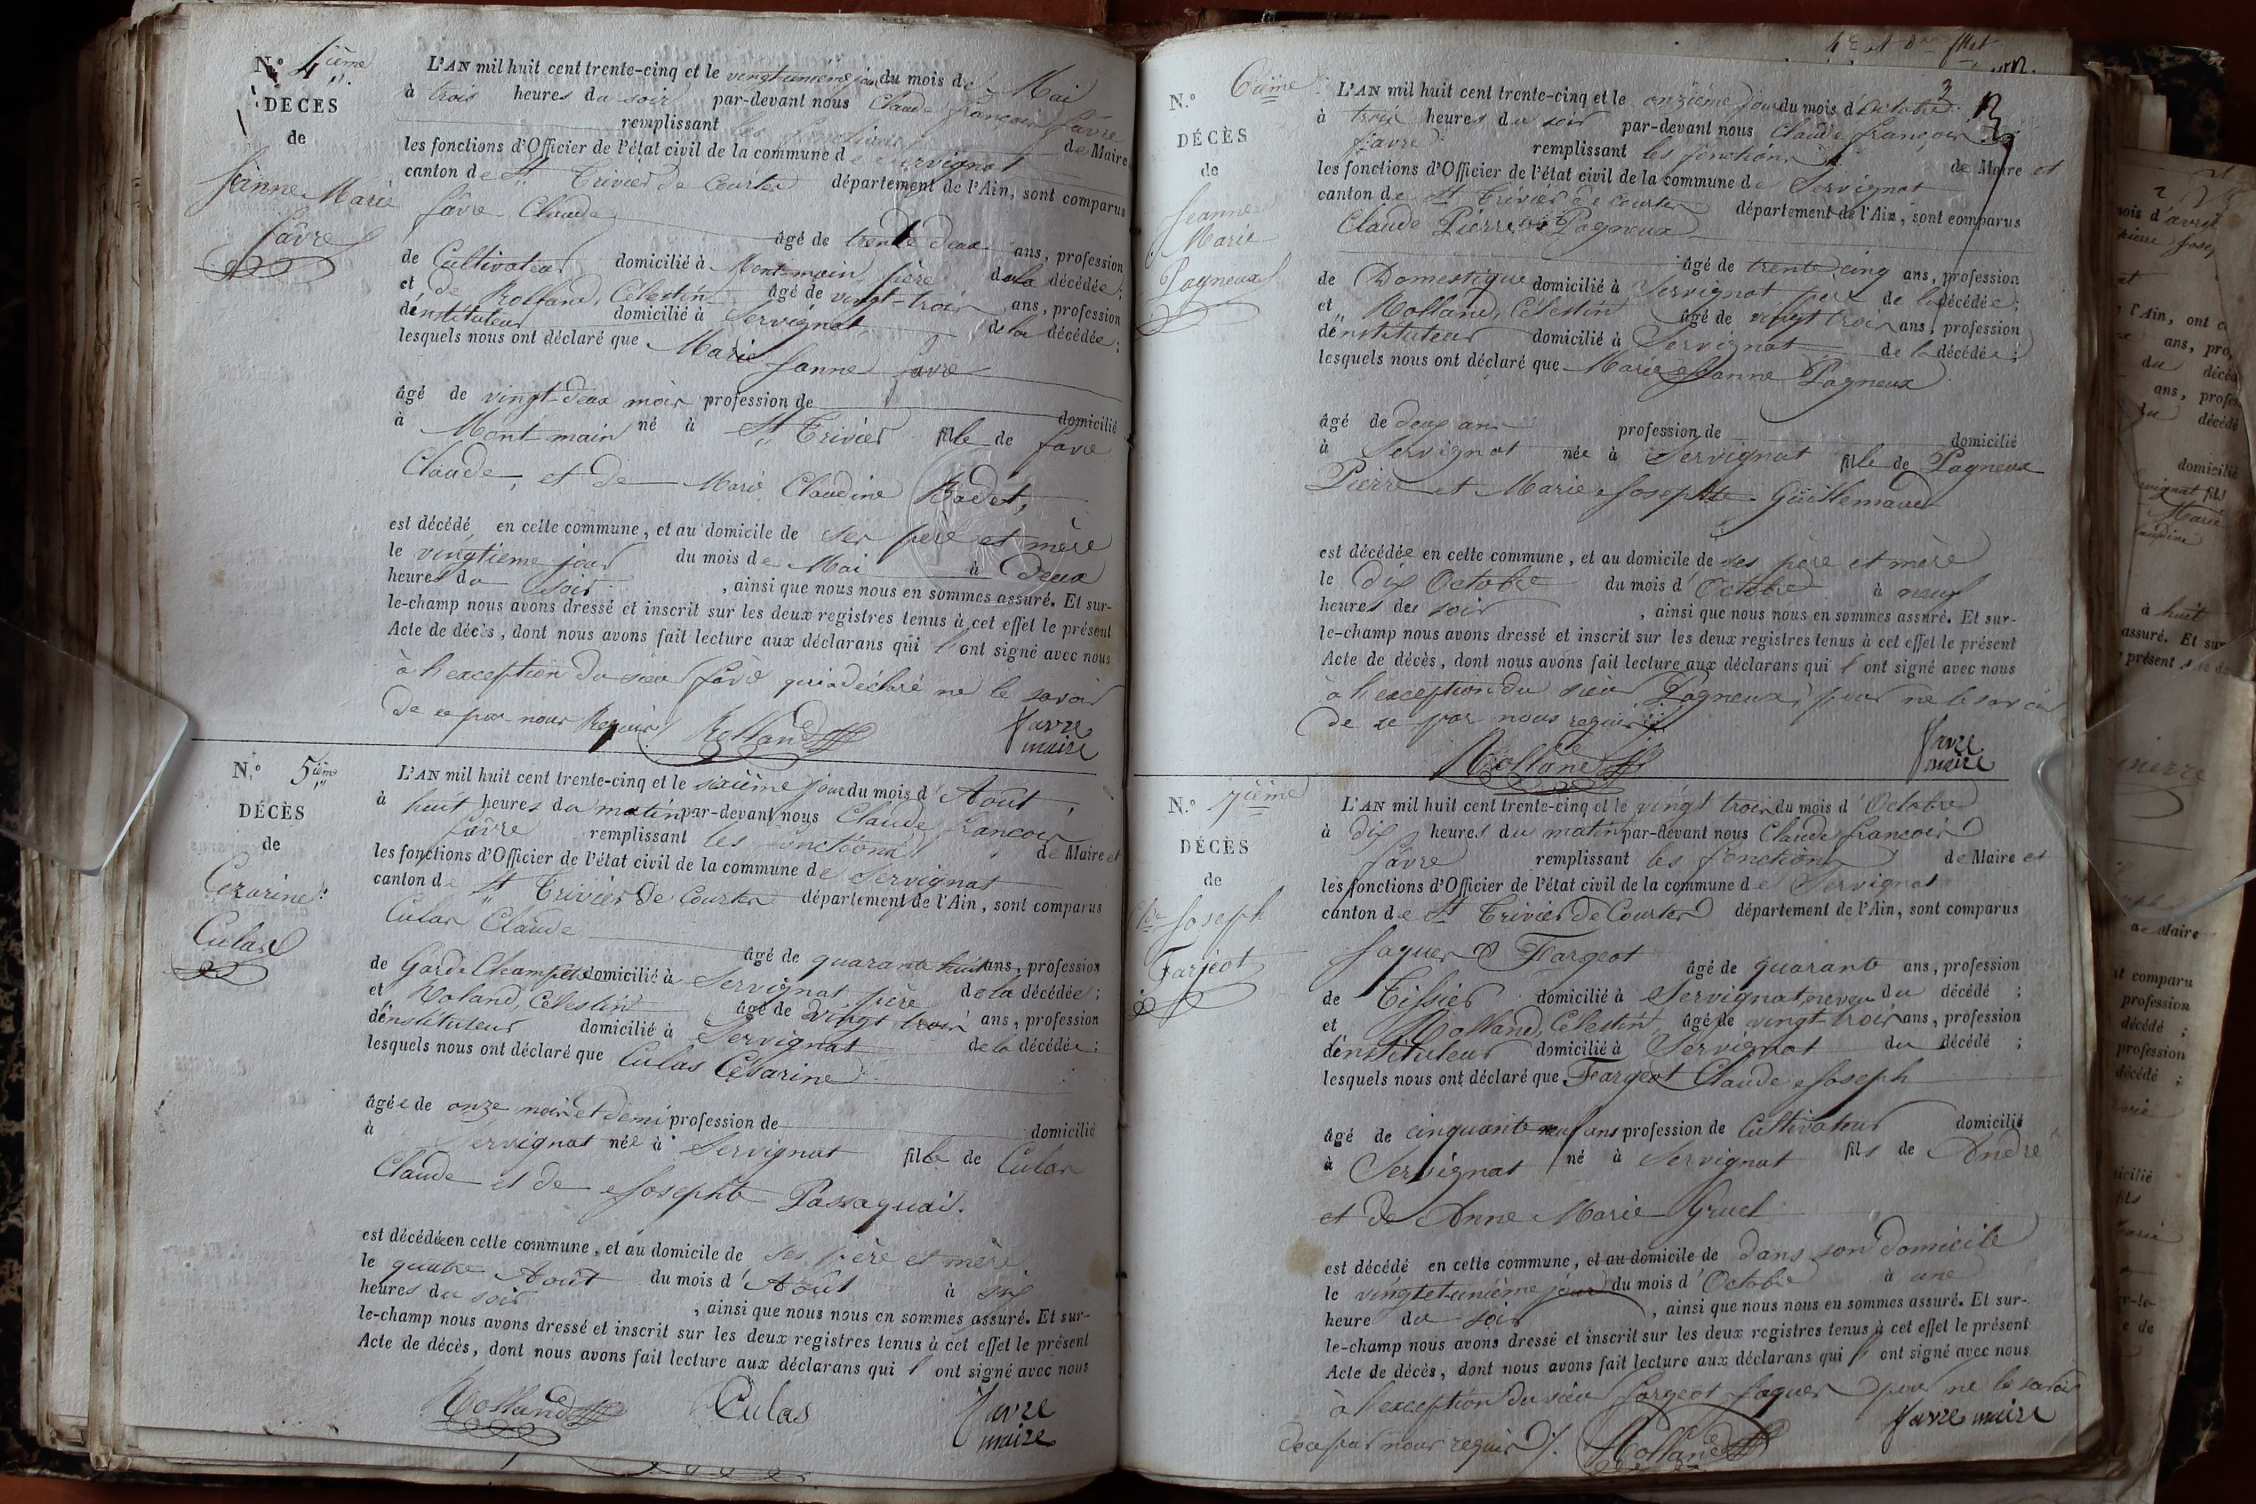 N.° 4ième
DÉCÈS
de
Jeanne Marie
favre
L'AN mil huit cent trente-cinq et le vingtunième jour du mois de Mai
à trois heures du soir par-devant nous Claude françois favre
remplissant les fonctions de Maire
les fonctions d'Officier de l'état civil de la commune de Servignat
canton de St Trivier de Courtes département de l'Ain, sont comparus
favre Claude
âgé de trente deux ans, profession
de Cultivateur domicilié à Montmain père de la décédée;
et de Rolland, Célestin âgé de vingt-trois ans, profession
d'instituteur domicilié à Servignat de la décédée;
lesquels nous ont déclaré que Marie
Janne favre
âgé de vingt-deux mois profession de domicilié
à Montmain né à St Trivier fille de favre
Claude, et de Marie Claudine Badet,
est décédé en cette commune, et au domicile de ses père et mère
le vingtieme jour du mois de Mai à Deux
heures du soir, ainsi que nous nous en sommes assuré. Et sur-
le-champ nous avons dressé et inscrit sur les deux registres tenus à cet effet le présent
Acte de décès, dont nous avons fait lecture aux déclarans qui l'ont signé avec nous
à l'exception du sieur favre qui a déclaré ne le savoir
de ce par nous Requis Rolland favre
maire
N.° 5ième
DÉCÈS
de
Cezarine
Culas
L'AN mil huit cent trente-cinq et le sixième jour du mois d'Août,
à huit heures du matin par-devant nous Claude françois
favre remplissant les fonctions de Maire et
les fonctions d'Officier de l'état civil de la commune de Servignat
canton de St Trivier de Courtes département de l'Ain, sont comparus
Culas Claude
âgé de quarante huit ans, profession
de Garde Champêtre domicilié à Servignat père de la décédée;
et Roland, Célestin âgé de vingt trois ans, profession
d'instituteur domicilié à Servignat de la décédée;
lesquels nous ont déclaré que Culas Césarine
âgée de onze mois et demi profession de domicilié
à Servignat née à Servignat fille de Culas
Claude et de Josephte Passaquai.
est décédée en cette commune, et au domicile de ses père et mère
le quatre Août du mois d'Août à six
heures du soir, ainsi que nous nous en sommes assuré. Et sur-
le-champ nous avons dressé et inscrit sur les deux registres tenus à cet effet le présent
Acte de décès, dont nous avons fait lecture aux déclarans qui l'ont signé avec nous
Rolland Culas favre
maire
N.° 6ième
DÉCÈS
de
Jeanne
Marie
Pagneux
3
L'AN mil huit cent trente-cinq et le onzième jour du mois d'Octobre
à trois heures du soir par-devant nous Claude françois
favre remplissant les fonctions de Maire et
les fonctions d'Officier de l'état civil de la commune de Servignat
canton de St Trivier de Courtes département de l'Ain, sont comparus
Claude Pierre Pagneux
âgé de trente cinq ans, profession
de Domestique domicilié à Servignat père de la décédée;
et Rolland, Célestin âgé de vingt trois ans, profession
d'instituteur domicilié à Servignat de la décédée;
lesquels nous ont déclaré que Marie Janne Pagneux
âgé de deux ans profession de domicilié
à Servignat née à Servignat fille de Pagneux
Pierre et Marie Josephte Guillemaud
est décédée en cette commune, et au domicile de ses père et mère
le dix Octobre du mois d'Octobre à neuf
heures du soir, ainsi que nous nous en sommes assuré. Et sur-
le-champ nous avons dressé et inscrit sur les deux registres tenus à cet effet le présent
Acte de décès, dont nous avons fait lecture aux déclarans qui l'ont signé avec nous
à l'exception du sieur Pagneux, pour ne le savoir
de ce par nous requis
Rolland favre
maire
N.° 7ième
DÉCÈS
de
Cde Joseph
Farjeot
L'AN mil huit cent trente-cinq et le vingt trois du mois d'Octobre
à dix heures du matin par-devant nous Claude françois
favre remplissant les fonctions de Maire et
les fonctions d'Officier de l'état civil de la commune de Servignat
canton de St Trivier de Courtes département de l'Ain, sont comparus
Jaques Fargeot âgé de quarante ans, profession
de Tissier domicilié à Servignat, neveu du décédé;
et Rolland, Célestin, âgé de vingt-trois ans, profession
d'instituteur domicilié à Servignat du décédé;
lesquels nous ont déclaré que Fargeot Claude Joseph
âgé de cinquante neuf ans profession de Cultivateur domicilié
à Servignat né à Servignat fils de André
et de Anne Marie Gruel
est décédé en cette commune, et au domicile de dans son domicile
le vingtetunième jour du mois d'Octobre à une
heure du soir, ainsi que nous nous en sommes assuré. Et sur-
le-champ nous avons dressé et inscrit sur les deux registres tenus à cet effet le présent
Acte de décès, dont nous avons fait lecture aux déclarans qui l'ont signé avec nous
à l'exception du sieur fargeot Jaques pour ne le savoir
de ce par nous requis Rolland favre maire